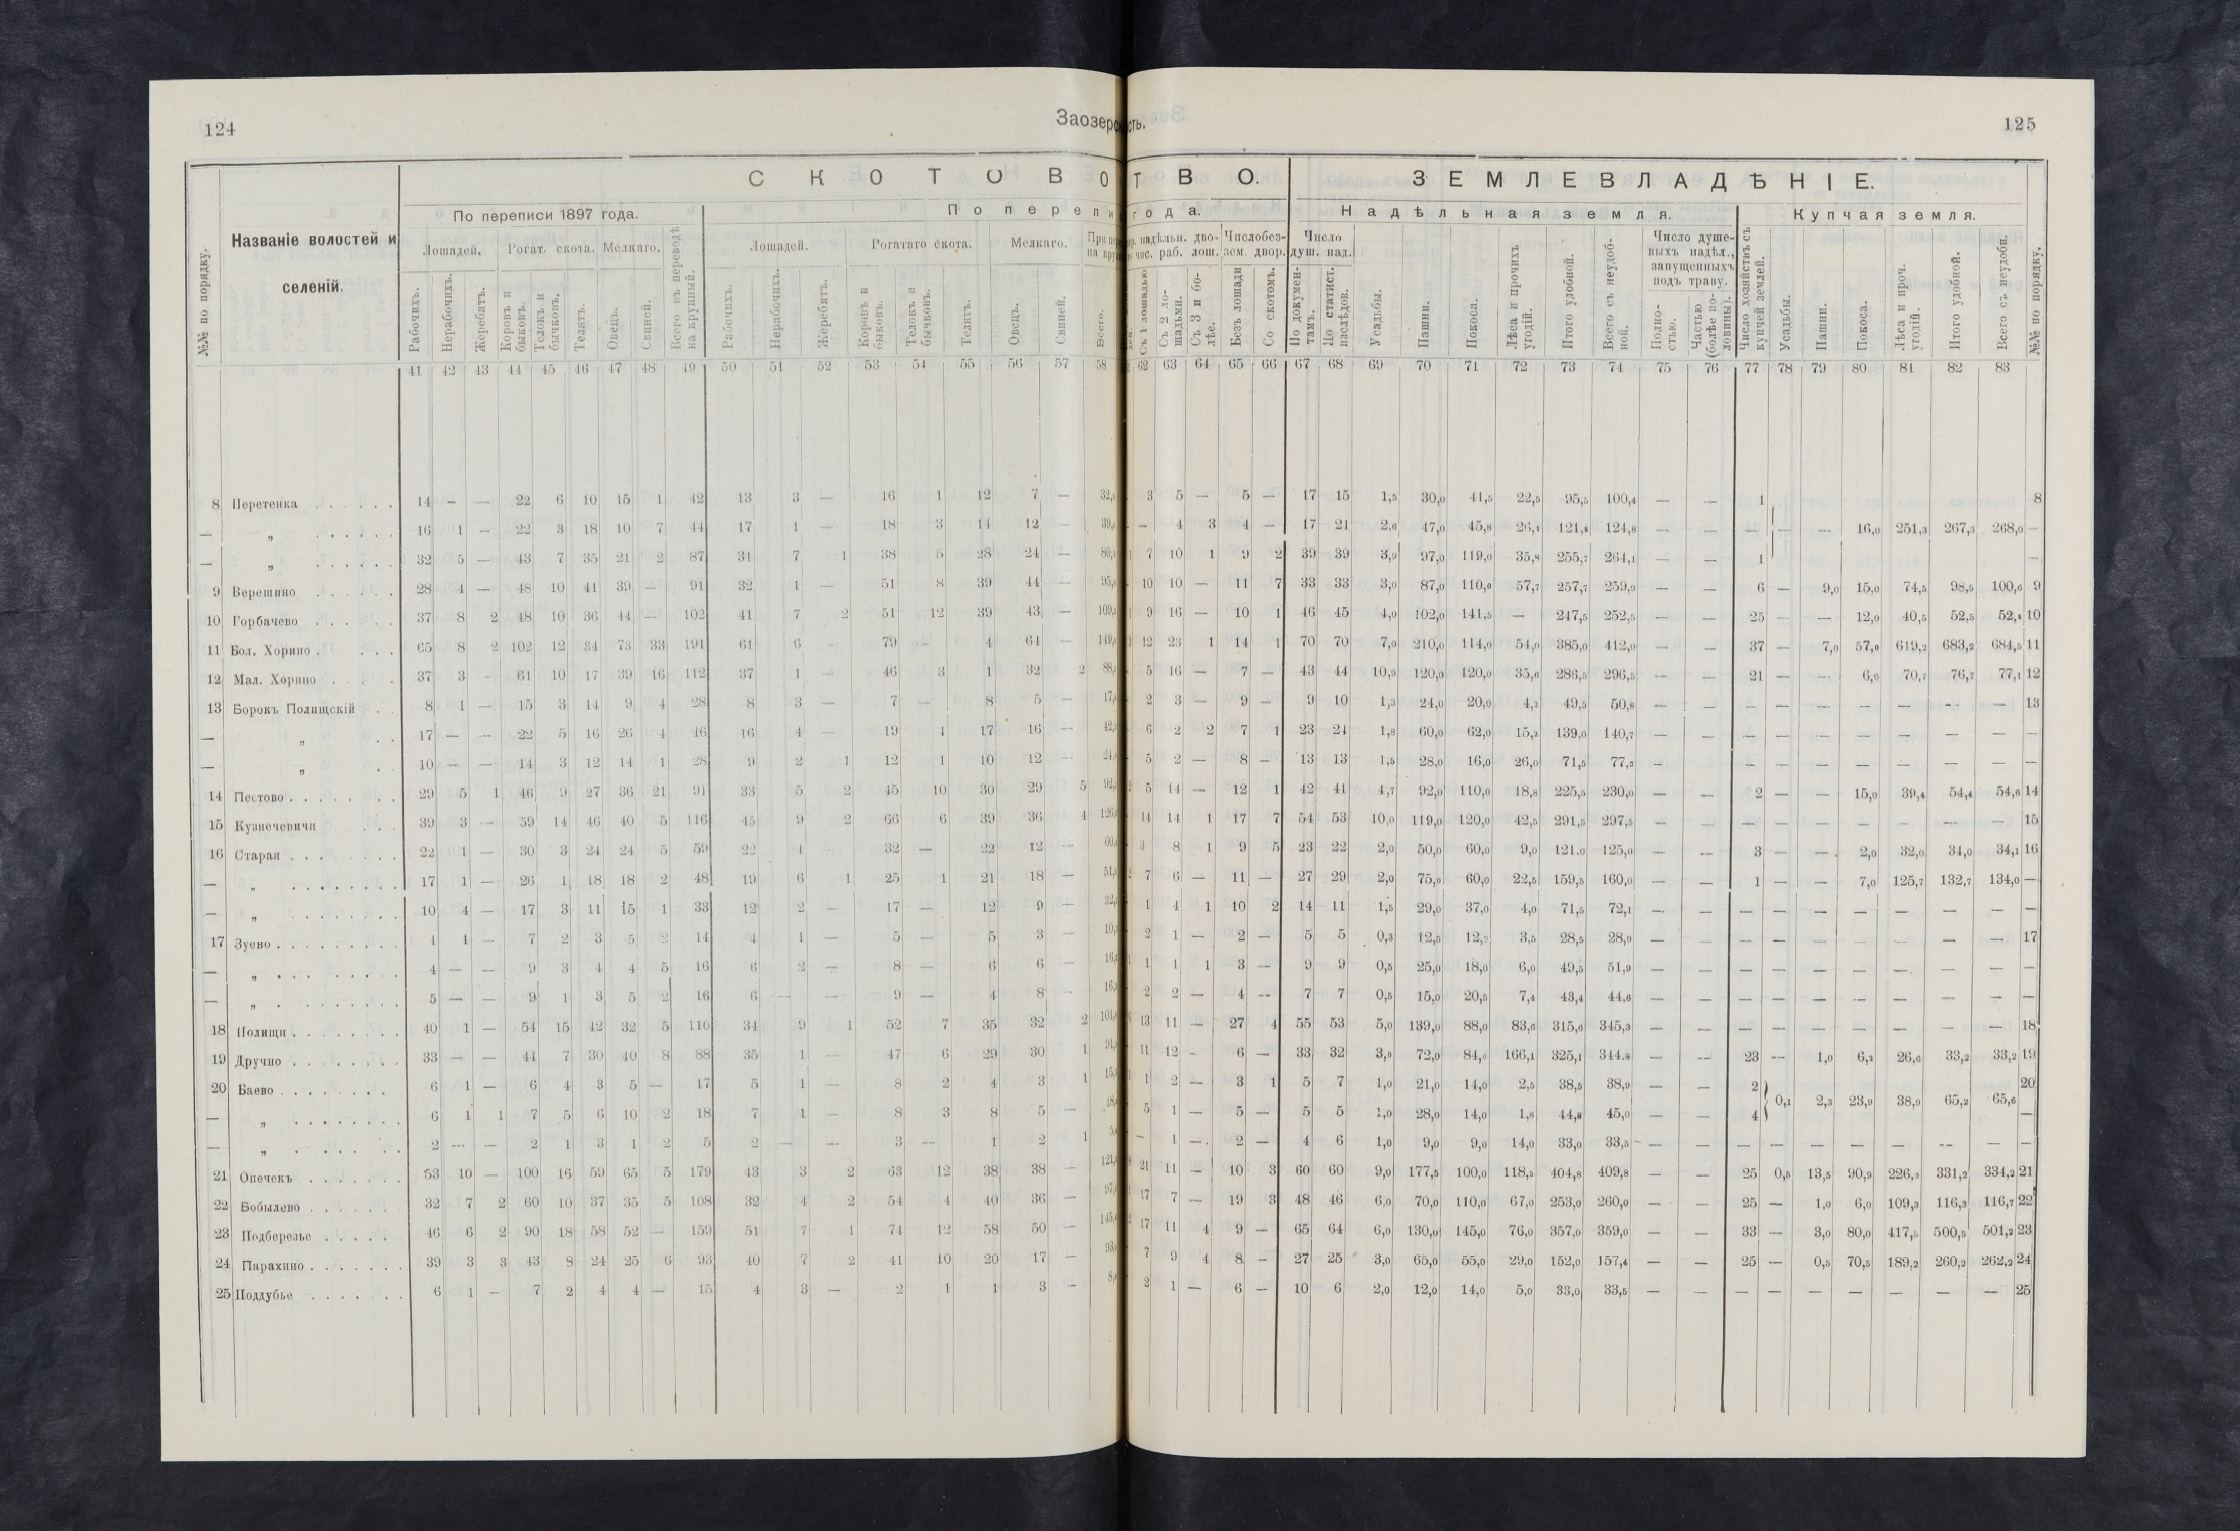 124
Заозерс
сть.
125
С К О Т О В О
Т В О.
З Е М Л Е В Л А Д Ѣ Н І Е.
№№ по порядку.
Названіе волостей и селеній.
По переписи 1897 года.
По перепи
года.
Надѣльная земля.
Купчая земля.
Лошадей. Рогат. скота. Мелкаго.
Всего въ переводѣ на крупный.
Лошадей. Рогатаго скота. Мелкаго.
надѣльн. дво- чис. раб. лош.
Число без- зем. двор.
Число душ. над.
Число душе- выхъ надѣл., запущенныхъ подъ траву.
Рабочихъ. Нерабочихъ. Жеребятъ. Коровъ и быковъ. Телокъ и бычковъ. Телятъ. Овецъ. Свиней.
Рабочихъ. Нерабочихъ. Жеребятъ. Коровъ и быковъ. Телокъ и бычковъ. Телятъ. Овецъ. Свиней. Всего.
Съ 1 лошадью Съ 2 ло- шадьми. Съ 3 и бо- лѣе. Безъ лошади Со скотомъ. По докумен- тамъ. По статист. изслѣдов. Усадьбы. Пашни. Покоса. Лѣса и прочихъ угодій. Итого удобной. Всего съ неудоб- ной. Полно- стью. Частью (болѣе по- ловины). Число хозяйствъ съ купчей землей. Усадьбы. Пашни. Покоса. Лѣса и проч. угодій. Итого удобной. Всего съ неудобн. №№ по порядку.
41 42 43 44 45 46 47 48 49 50 51 52 53 54 55 56 57 58 62 63 64 65 66 67 68 69 70 71 72 73 74 75 76 77 78 79 80 81 82 83
8 Перетенка 14 – — 22 6 10 15 1 42 13 3 — 16 1 12 7 — 3 5 — 5 — 17 15 1,5 30,0 41,5 22,5 95,5 100,4 — — 1 8
— „ 16 1 — 22 3 18 10 7 44 17 1 — 18 3 14 12 — – 4 3 4 — 17 21 2,6 47,0 45,8 26,1 121,4 124,8 — — — — — 16,0 251,3 267,3 268,0 —
— „ 32 5 — 43 7 35 21 2 87 31 7 1 38 5 28 24 — 7 10 1 9 2 39 39 3,9 97,0 119,0 35,8 255,7 264,1 — — 1 —
9 Верешино 28 4 — 48 10 41 39 — 91 32 1 — 51 8 39 44 — 10 10 — 11 7 33 33 3,0 87,0 110,0 57,7 257,7 259,9 — — 6 — 9,0 15,0 74,5 98,5 100,6 9
10 Горбачево 37 8 2 48 10 36 44 — 102 41 7 2 51 12 39 43 — 9 16 — 10 1 46 45 4,0 102,0 141,5 — 247,5 252,5 — — 25 — — 12,0 40,5 52,5 52,8 10
11 Бол. Хорино 65 8 2 102 12 34 73 33 191 61 6 - 79 — 4 64 — 12 23 1 14 1 70 70 7,0 210,0 114,0 54,0 385,0 412,0 — — 37 — 7,0 57,0 619,2 683,2 684,5 11
12 Мал. Хорино 37 3 - 61 10 17 39 16 112 37 1 — 46 3 1 32 2 5 16 — 7 — 43 44 10,9 120,0 120,0 35,6 286,5 296,5 — — 21 — — 6,0 70,7 76,7 77,1 12
13 Борокъ Полищскій 8 1 — 15 3 14 9 4 28 8 3 — 7 — 8 5 — 2 3 — 9 — 9 10 1,3 24,0 20,0 4,2 49,5 50,8 — — — — — — — — — 13
— „ 17 — — 22 5 16 26 4 46 16 4 — 19 4 17 16 — 6 2 2 7 1 23 21 1,8 60,0 62,0 15,2 139,0 140,7 — — — — — — — — — —
— „ 10 — — 14 3 12 14 1 28 9 2 1 12 1 10 12 — 5 2 — 8 — 13 13 1,5 28,0 16,0 26,0 71,5 77,3 — — — — — — — — —
14 Пестово 29 5 1 46 9 27 36 21 91 33 5 2 45 10 30 29 5 5 14 — 12 1 42 41 4,7 92,0 110,0 18,8 225,5 230,0 — — 2 — — 15,0 39,4 54,4 54,6 14
15 Кузнечевичи 39 3 — 59 14 46 40 5 116 45 9 2 66 6 39 36 4 14 14 1 17 7 54 53 10,0 119,0 120,0 42,5 291,5 297,5 — — — — — — — — — 15
16 Старая 22 1 — 30 3 24 24 5 59 22 4 - 32 — 22 12 — 3 8 1 9 5 23 22 2,0 50,0 60,0 9,0 121.0 125,0 — — 3 — — 2,0 32,0 34,0 34,1 16
— „ 17 1 — 26 1 18 18 2 48 19 6 1 25 1 21 18 — 7 6 — 11 — 27 29 2,0 75,0 60,0 22,5 159,5 160,0 — — 1 — — 7,0 125,7 132,7 134,0 —
— „ 10 4 — 17 3 11 15 1 33 12 2 — 17 — 12 9 — 1 4 1 10 2 14 11 1,5 29,0 37,0 4,0 71,5 72,1 — — — — — — — — — —
17 Зуево 4 1 — 7 2 3 5 2 14 4 1 — 5 — 5 3 — 2 1 — 2 — 5 5 0,3 12,5 12,2 3,5 28,5 28,9 — — — — — — — — — 17
— „ 4 — — 9 3 4 4 5 16 6 2 — 8 — 6 6 — 1 1 1 3 — 9 9 0,5 25,0 18,0 6,0 49,5 51,9 — — — — — — — — — —
— „ 5 — — 9 1 3 5 2 16 6 — — 9 — 4 8 - 2 2 — 4 -- 7 7 0,5 15,0 20,5 7,4 43,4 44,6 — — — — — — — — — —
18 Полищи 40 1 — 54 15 42 32 5 110 34 9 1 52 7 35 32 2 13 11 — 27 4 55 53 5,0 139,0 88,0 83,6 315,6 345,3 — — — — — — — — — 18
19 Дручно 33 — — 44 7 30 40 8 88 35 1 — 47 6 29 30 1 11 12 - 6 — 33 32 3,0 72,0 84,0 166,1 325,1 344.8 — — 23 — 1,0 6,2 26,6 33,2 33,2 19
20 Баево 6 1 — 6 4 3 5 — 17 5 1 — 8 2 4 3 1 1 2 — 3 1 5 7 1,0 21,0 14,0 2,5 38,5 38,9 — — 2 20
— „ 6 1 1 7 5 6 10 2 18 7 1 — 8 3 8 5 — 5 1 — 5 — 5 5 1,0 28,0 14,0 1,8 44,8 45,0 — — 4 } 0,1 2,3 23,9 38,9 65,2 65,6 —
— „ 2 — — 2 1 3 1 2 5 2 — — 3 — 1 2 1 – 1 —. 2 — 4 6 1,0 9,0 9,0 14,0 33,0 33,5 — — — — — — — — — —
21 Опечекъ 53 10 — 100 16 59 65 5 179 43 3 2 63 12 38 38 — 21 11 — 10 3 60 60 9,0 177,5 100,0 118,3 404,8 409,8 — — 25 0,5 13,5 90,9 226,3 331,2 334,2 21
22 Бобылево 32 7 2 60 10 37 35 5 108 32 4 2 54 4 40 36 — 17 7 — 19 3 48 46 6,0 70,0 110,0 67,0 253,0 260,0 — — 25 — 1,0 6,0 109,3 116,3 116,7 22
23 Подберезье 46 6 2 90 18 58 52 — 159 51 7 1 74 12 58 50 — 17 11 4 9 — 65 64 6,0 130,0 145,0 76,0 357,0 359,0 — — 33 — 3,0 80,0 417,5 500,5 501,2 23
24 Парахино 39 3 3 43 8 24 25 6 93 40 7 2 41 10 20 17 — 7 9 4 8 — 27 25 3,0 65,0 55,0 29,0 152,0 157,4 — — 25 — 0,5 70,5 189,2 260,2 262,2 24
25 Поддубье 6 1 — 7 2 4 4 — 15 4 3 — 2 1 1 3 — 2 1 — 6 — 10 6 2,0 12,0 14,0 5,0 33,0 33,5 — — — — — — — — — 25